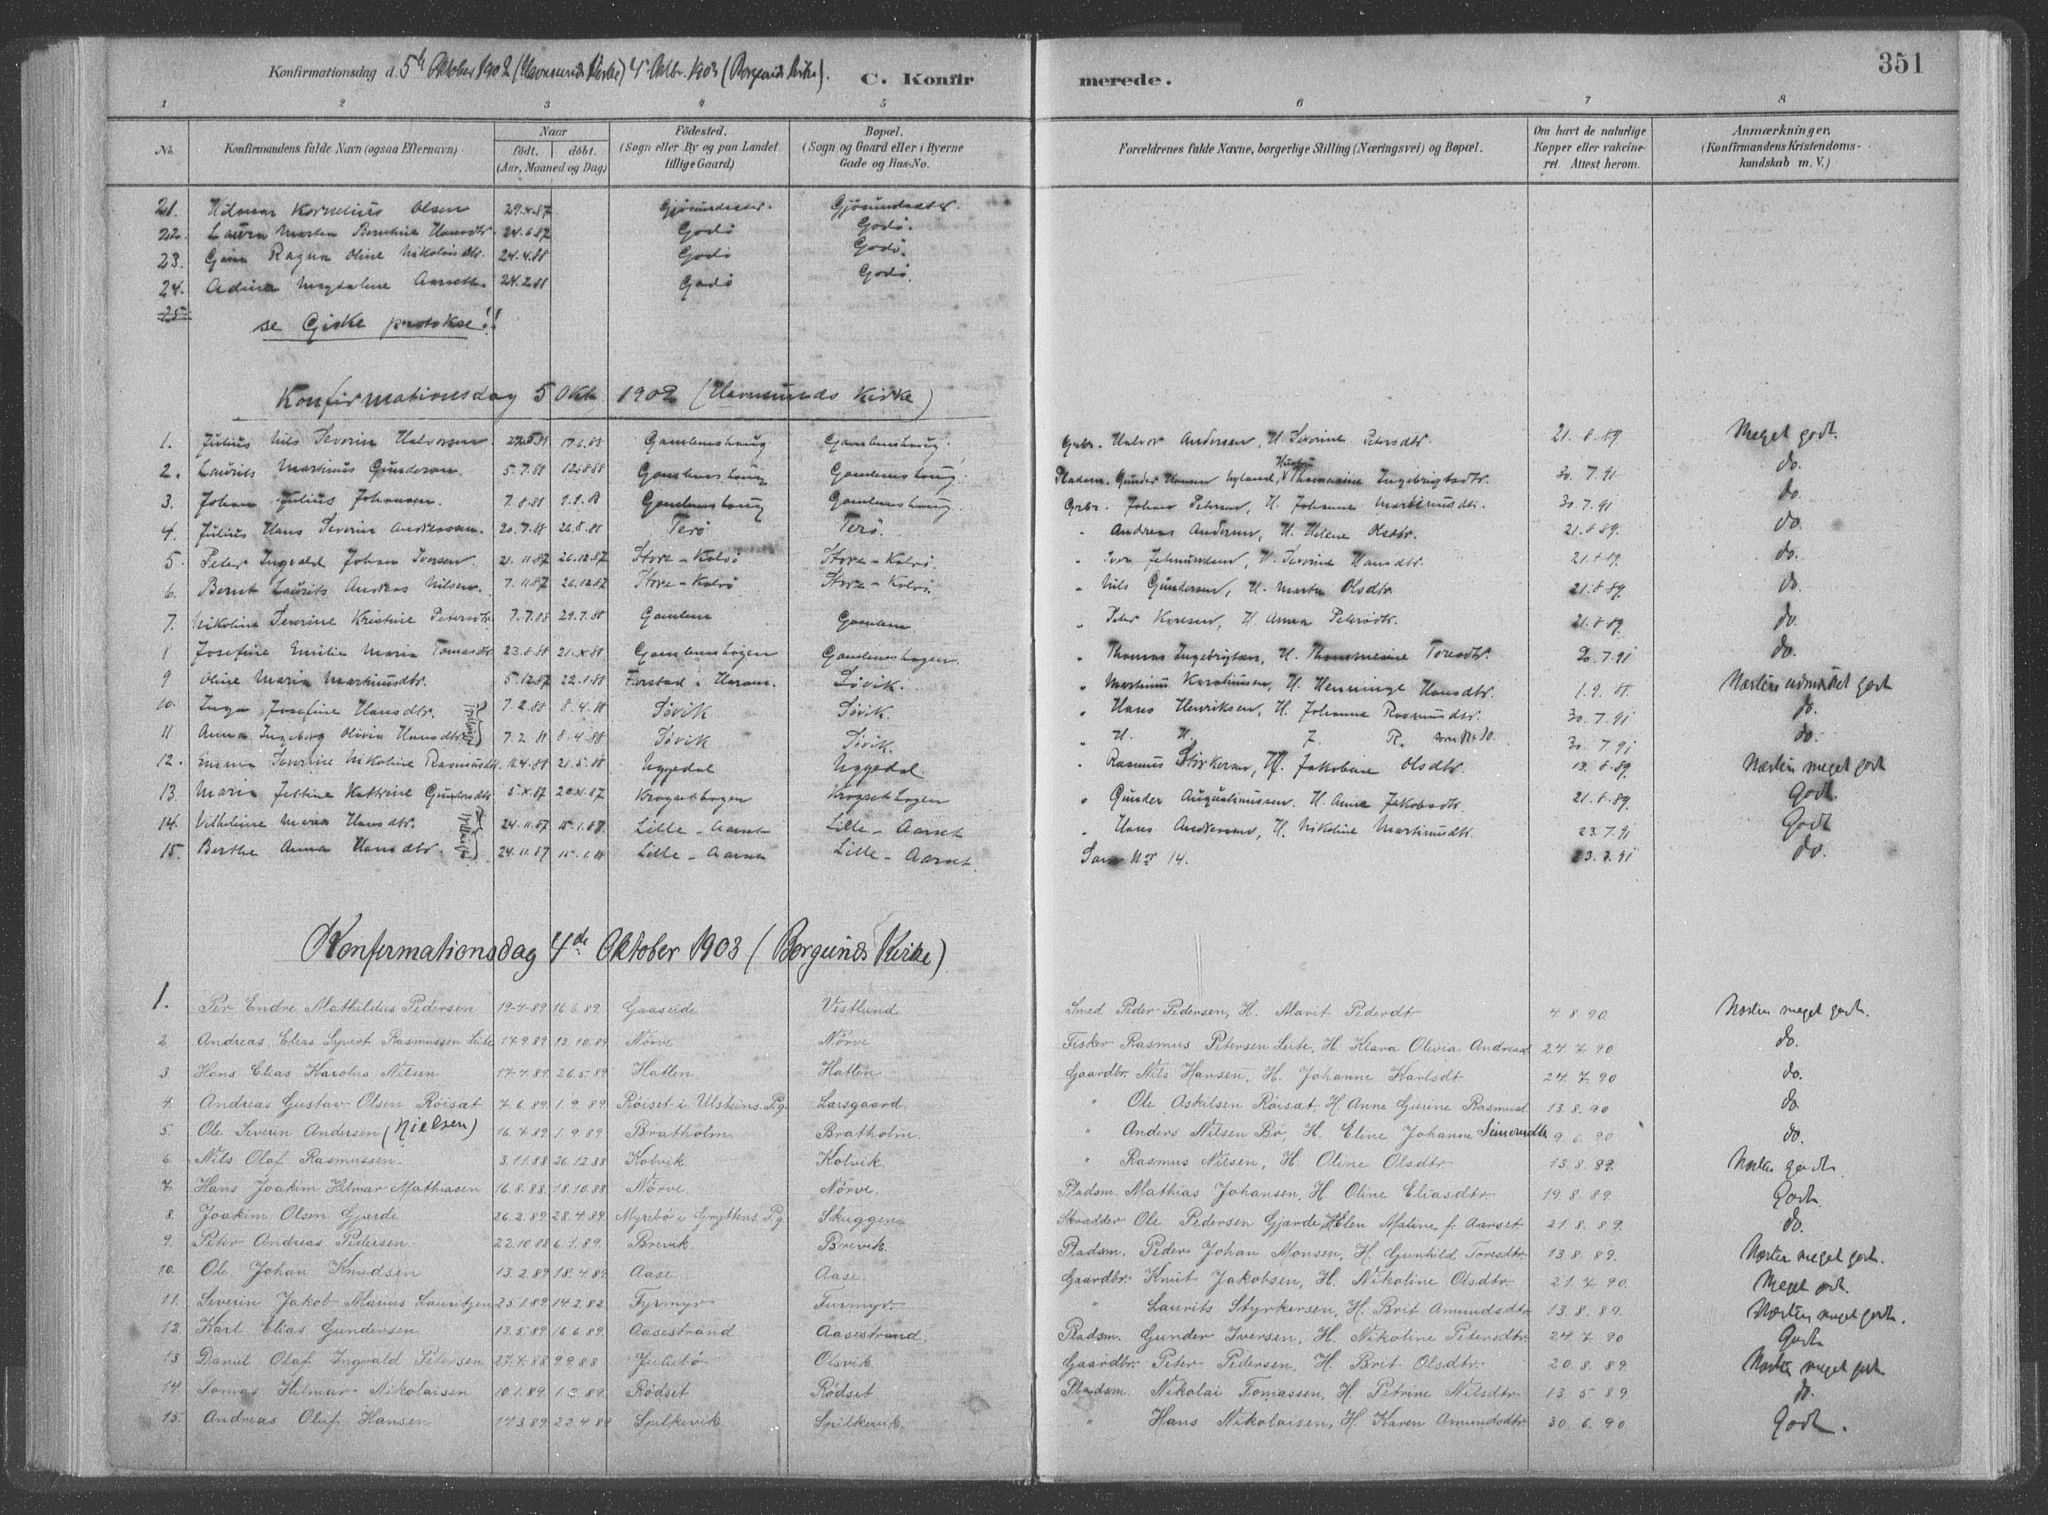 351
Konfirmationsdag d. 5te Oktober 1902 (Havnsunds Kirke) 4de Oktbr. 1903 (Borgunds Kirke). C. Konfirmerede.
1 2 3 4 5 6 7 8
No. Konfirmandens fulde Navn (ogsaa Efternavn). Naar født. døbt. (Aar, Maaned og Dag) Fødested. (Sogn eller By og paa Landet tillige Gaard) Bopæl. (Sogn og Gaard eller i Byerne Gade og Hus-No. Forældrenes fulde Navne, borgerlige Stilling (Næringsvei) og Bopæl. Om havt de naturlige Kopper eller vakcineret Attest herom. Anmærkninger. (Konfirmandens Kristendomskundskab m. V.)
21. Hilmar Kornelius Olsen 29.x.87 Gjøsundsæter. Gjøsundsæter.
22. Laura Marten Berntine Hansdtr. 24.6.87 Godø Godø.
23. Gina Ragna Oline Nikolaisdtr. 24.4.88 Godø Godø.
24. Adina Magdalene Aarseth. 24.2.88 Godø Godø.
25
se Giske protokol!!
Konfirmationsdag 5 Okt. 1902 (Havnsunds Kirke)
1. Julius Nils Severin Halvorsen 17.6.88 Gamlemshaug Gamlemshaug. Grbr. Halvor Andersen, H. Severine Petersdtr. 21.8.89 Meget godt.
2. Laurits Martinus Gundersen. 5.7.88 12.8.88 Gamlemshaug Gamlemshaug. Pladsm. Gunder Hansen Nyland, Hustru Thomasine Ingebrigtsdtr. 30.7.91 do.
3. Johan Julius Johansen. 7.8.88 9.9.88 Gamlemshaug Gamlemshaug. Grbr. Johan Petersen, H. Johanne Martinusdtr. 30.7.91 do.
4. Julius Hans Severin Andreassen. 20.7.88 26.8.88 Terø Terø. " Andreas Andersen, H. Helene Olsdtr. 21.8.89. do.
5. Peter Ingvald Johan Iversen 21.11.87 26.12.87 Store-Kalvø Store-Kalvø. " Iver Jetmundsen, H. Severine Hansdtr. 21.8.89. do.
6. Bernt Laurits Andreas Nilsen. 7.11.87 26.12.87 Store-Kalvø Store-Kalvø. " Nils Gundersen, H. Marta Olsdtr. 21.8.89. do.
7. Nikoline Severine Kristine Petersdtr. 7.7.88 29.7.88 Gamlem Gamlem " Peter Knutsen, H. Anna Petersdtr. 21.8.89. do.
8 Josefine Emilie Maria Tomasdtr. 23.8.88 21.x.88 Gamlemshagen Gamlemshagen. " Thomas Ingebrigtsen, H. Thommesine Toresdtr. 30.7.91 do.
9 Oline Maria Martinusdtr. 5.12.87 22.1.88 Farstad i Haram. Søvik. " Martinus Karolinusen, H. Henninge Hansdtr. 1.9.88. Næsten udmærket godt
10. Inga Josefine Hansdtr. 7.2.88 8.4.88 Søvik Søvik. " Hans Henriksen, H. Johanne Rasmusdtr. 30.7.91 do.
11. Anna Ingeborg Olivia Hansdtr. (tvillinger) 7.2.88 8.4.88 Søvik Søvik. " H. H. J. R. som Nr. 10. 30.7.91 do.
12. Emma Severine Nikoline Rasmusdtr. 4.88 21.5.88 Uggedal Uggedal. " Rasmus Styrkersen, H. Jakobine Olsdtr. 13.8.89. Næsten meget godt
13. Maria Jettine Kathrine Gundersdtr. 5.x.87 20.x.87 Krogsethagen Krogsethagen " Gunder Augustinussen. H. Anne Jakobsdtr. 21.8.89. Godt.
14. Vilhelmine Maria Hansdtr. 24.11.87 15.1.88. Lille-Aarset Lille-Aarset " Hans Andreassen, H. Nikoline Martinusdtr. 23.7.91 Godt
15. Berthe Anna Hansdtr. (tvillinger) 24.11.87 15.1.88 Lille-Aarset Lille-Aarset. Som Nr 14. 23.7.91 do.
Konfirmationsdag 4de Oktober 1903 (Borgunds Kirke)
1. Per Endre Mathildus Pedersen 19.4.89 16.6.89 Gaaseide Vestlund Smed Peder Pedersen, H. Marit Pedersdt 4.8.90. Næsten meget godt.
2 Andreas Elias Syvert Rasmussen Leite 17.9.89 13.10.89 Nørve Nørve Fisker Rasmus Petersen Leite, H. Klara Olevia Andreasd 24.7.90 do.
3 Hans Elias Karolus Nilsen 14.4.89 26.5.89 Hatlen Hatlen Gaardbr. Nils Hansen, H. Johanne Karlsdt 24.7.90 do.
4. Andreas Gustav Olsen Røisæt 7.6.89 1.9.89 Røiset i Ulsteins Pg. Larsgaard. " Ole Askilsen Røisæt, H. Anne Gurine Rasmusd 13.8.90 do.
5. Ole Severin Andersen (Nielsen) 16.4.89 1.9.89 Bratholm Bratholm. " Anders Nilsen Bø, H. Eline Johanne Simonsdtr 9.6.90 do.
6. Nils Olaf Rasmussen. 3.11.88 26.12.88 Kolvik Kolvik. " Rasmus Nilsen, H. Oline Olsdtr. 13.8.89. Næsten godt.
7. Hans Joakim Hilmar Mathiasen 16.8.88. 18.10.88 Nørve. Nørve. Pladsm. Mathias Johansen, H. Oline Eliasdtr. 19.8.89 Godt.
8. Joakim Olsen Gjærde 26.2.89 28.4.89 Myrebø i Gryttens Pg. Skuggen Skradder Ole Pedersen Gjærde, H. Elen Maline f. Aarset 21.8.89. do.
9. Peter Andreas Pedersen 22.10.88 6.1.89. Brevik. Brevik. Pladsm. Peders Johan Monsen, H. Gunhild Toresdtr. 13.8.89. Næsten meget godt.
10. Ole Johan Knudsen 13.2.89 18.4.89 Aase. Aase. Gaardbr. Knut Jakobsen, H. Nikoline Olsdtr. 21.7.90. Meget godt.
11. Severin Jakob Marius Lauritzen 25.1.89. 14.3.82 Fyrmyr Furmyr. " Laurits Styrkersen, H. Brit Amundsdtr 13.8.89. Næsten meget godt.
12. Karl Elias Gundersen 13.5.89 16.6.89. Aasestrand Aasestrand. Pladsm. Gunder Iversen, H. Nikoline Petersdtr 24.7.90 Godt
13 Daniel Olaf Ingvald Petersen 27.4.88 9.9.88 Julebø Olsvik. Gaardbr. Peter Pedersen, H. Brit Olsdtr. 20.8.89 Næsten meget godt
14. Tomas Hilmar Nikolaisen 10.1.89. 1.3.89. Rødset Rødset Pladsm. Nikolai Tomassen, H. Petrine Nilsdtr. 13.5.89 do.
15. Andreas Oluf Hansen 14.3.89 22.4.89 Spilkevik. Spilkevik. " Hans Nikolaisen, H. Karen Amundsdtr 30.6.90. Godt.